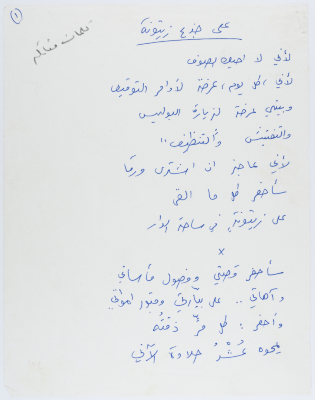 ١
كلمات مقاتلة
على جذع زيتونة
لأني لا أحيك الصوف
لأني، كل يوم، عرضة لأوامر التوقيف
وبيتي عرضة لزيارة البوليس
والتفتيش والتنظيف ..
لأني عاجز ان اشتري ورقا
سأحفر كل ما القى
على زيتونةٍ في ساحة الدار
×
سأحفر قصتي وفصول مأساتي
وآهاتي .. على بيّارتي وقبور امواتي
وأحفر : كل مرٍّ ذقتُه
يمحوه عُشْرُ حلاوة الآتي